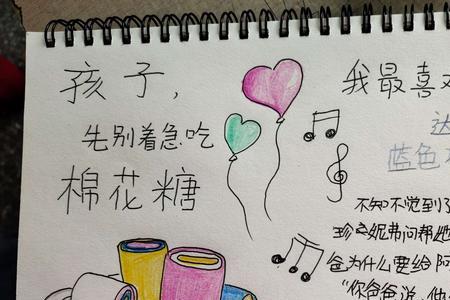 孩子，
先别着急吃
棉花糖
我最喜
达
蓝色
不知不觉到了
珍妮弗问帮她
爸为什么要给阿
"你爸爸说，他